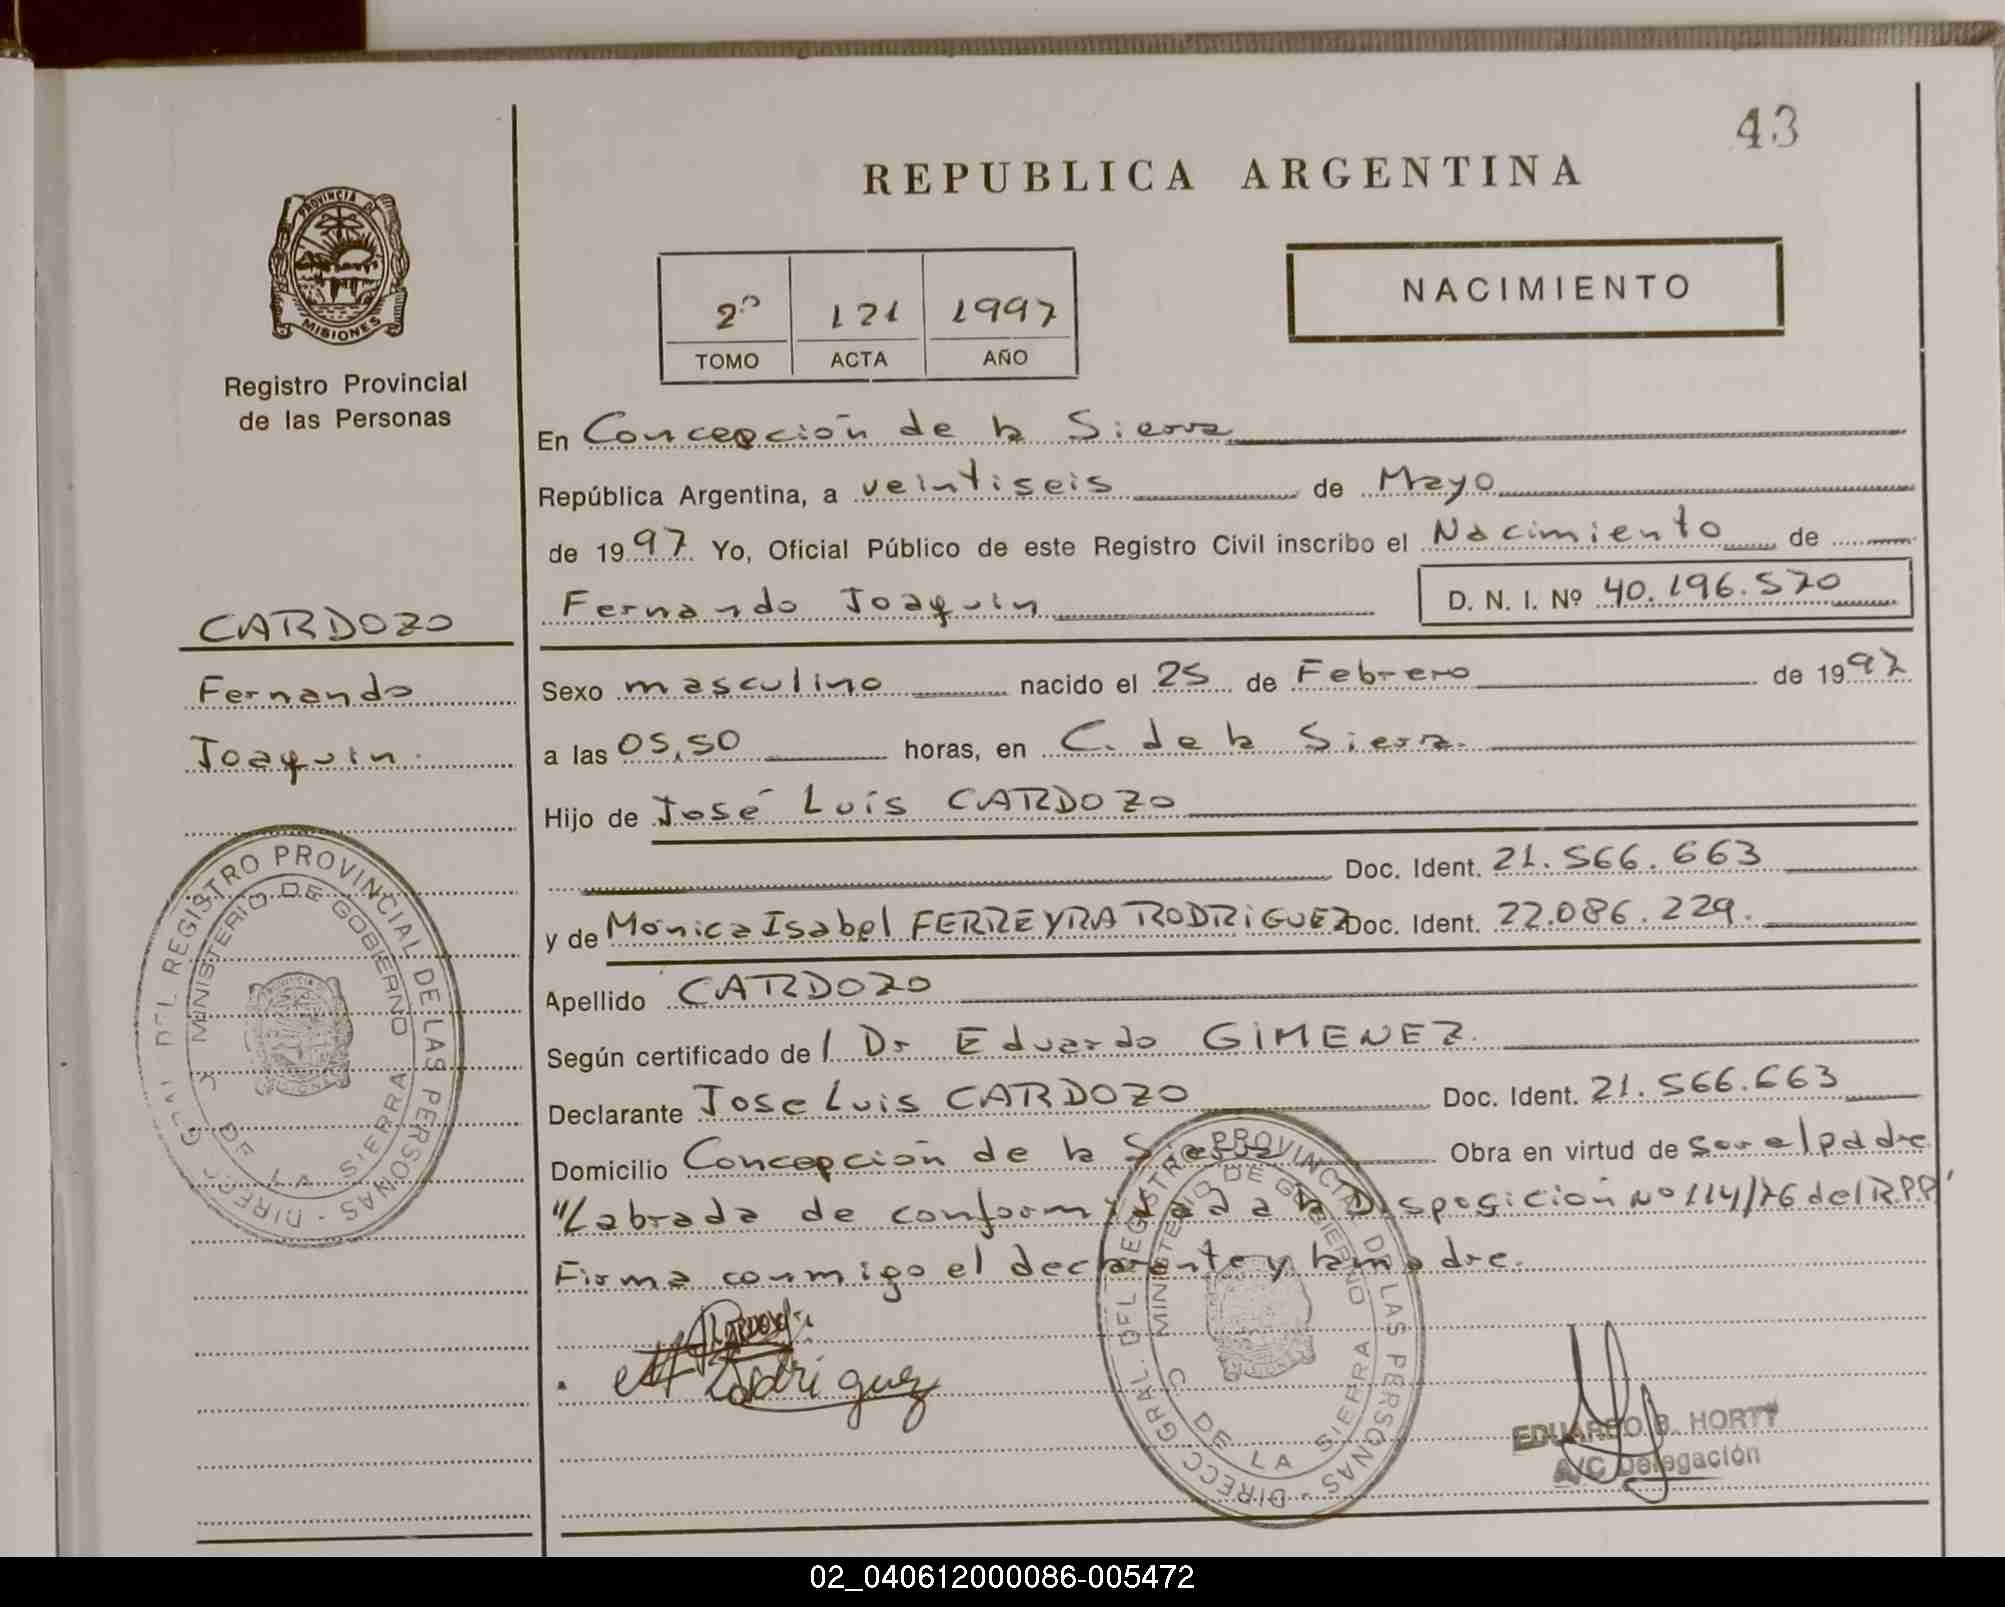 43
REPUBLICA ARGENTINA
PROVINCIA DE
MISIONES
Registro Provincial
de las Personas
2º 121 1997
TOMO ACTA AÑO
NACIMIENTO
En Concepción de la Sierra
República Argentina, a veintiseis de Mayo
de 1997 Yo, Oficial Público de este Registro Civil inscribo el Nacimiento de
Fernando Joaquin D. N. I. Nº 40.196.570
CARDOZO
Fernando
Joaquin.
Sexo masculino nacido el 25 de Febrero de 1997
a las 05,50 horas, en C. de la Sierra.
Hijo de José Luís CARDOZO
Doc. Ident. 21.566.663
y de Mónica Isabel FERREYRA RODRIGUEZ Doc. Ident. 22.086.229.
Apellido CARDOZO
Según certificado de l Dr Eduardo GIMENEZ.
Declarante Jose Luis CARDOZO Doc. Ident. 21.566.663
Domicilio Concepción de la Sierra Obra en virtud de ser el padre
"Labrada de conformidad a la Disposición Nº 114/76 del R.P.P."
Firma conmigo el declarante y la madre.
Rodriguez
EDUARDO B. HORTT
A/C Delegación
DIRECC GRAL. DEL REGISTRO PROVINCIAL DE LAS PERSONAS -
MINISTERIO DE GOBIERNO
C DE LA SIERRA
DIRECC GRAL. DEL REGISTRO PROVINCIAL DE LAS PERSONAS -
MINISTERIO DE GOBIERNO
C DE LA SIERRA
02_040612000086-005472